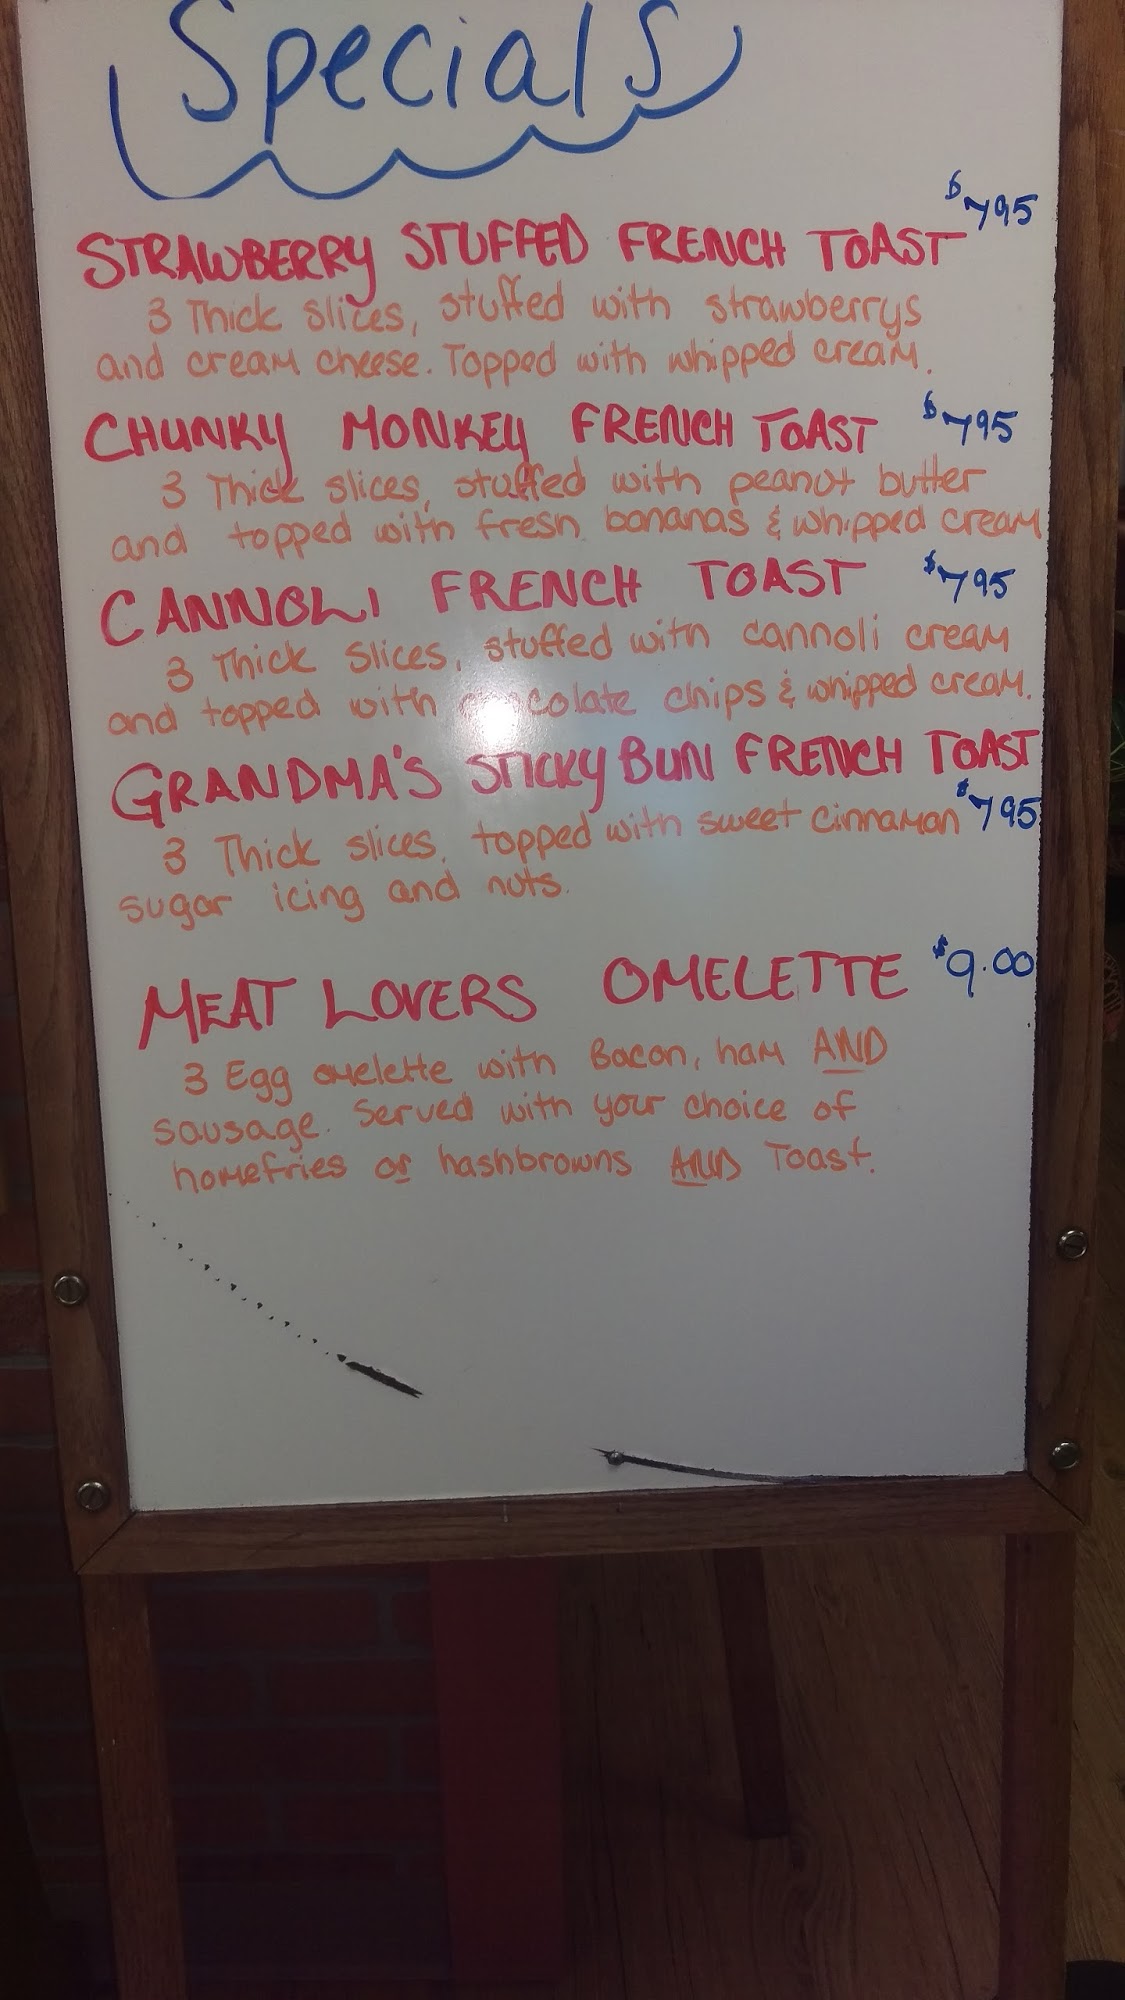 Specials
STRAWBERRY STUFFED FRENCH TOAST $795
3 Thick slices, stuffed with strawberrys
and cream cheese. Topped with whipped cream.
CHUNKY MONKEY FRENCH TOAST $795
3 Thick slices, stuffed with peanut butter
and topped with fresh bananas & whipped cream
CANNOLI FRENCH TOAST $795
3 Thick slices, stuffed with cannoli cream
and topped with chocolate chips & whipped cream.
GRANDMA'S STICKY BUN FRENCH TOAST
3 Thick slices, topped with sweet cinnamon $795
sugar icing and nuts.
MEAT LOVERS OMELETTE $9.00
3 Egg omelette with Bacon, ham AND
sausage. Served with your choice of
homefries or hashbrowns AND Toast.